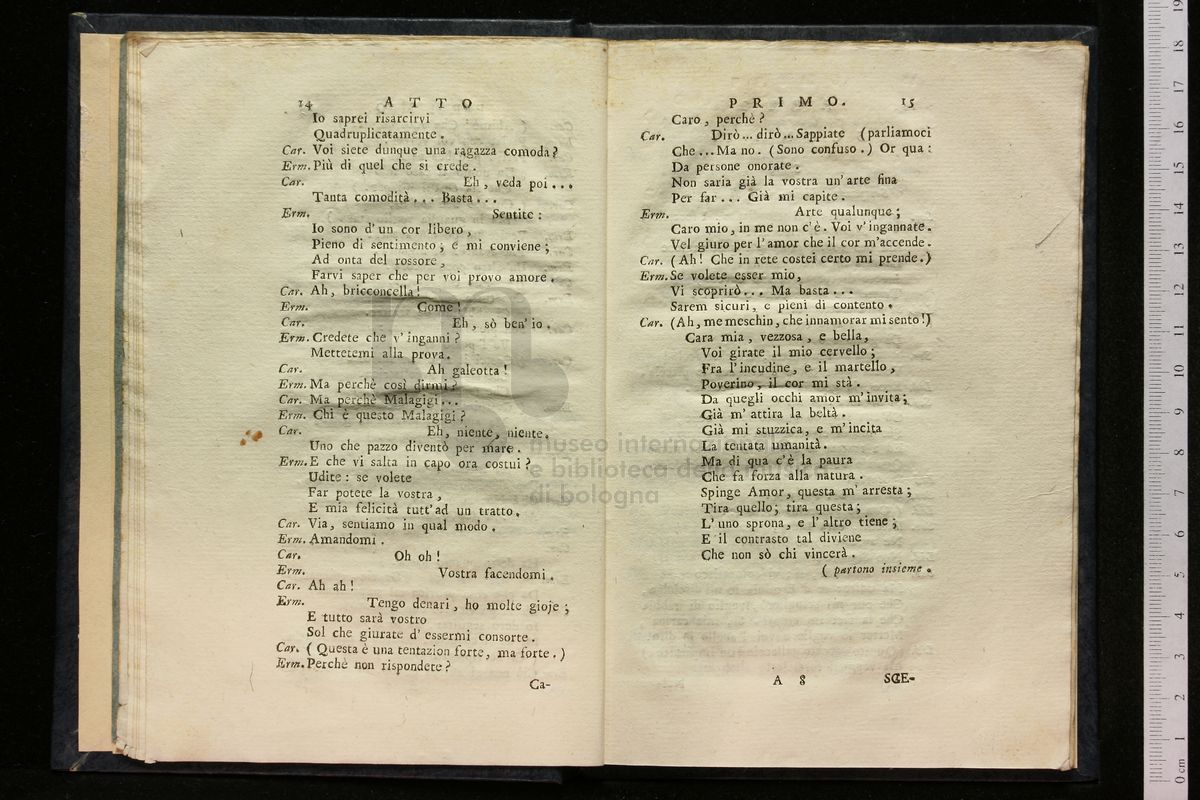 14 ATTO
Io saprei risarcirvi
Quadruplicatamente.
Car. Voi siete dunque una ragazza comoda?
Erm. Più di quel che si crede.
Car. Eh, veda poi...
Tanta comodità... Basta...
Erm. Sentite:
Io sono d'un cor libero,
Pieno di sentimento; e mi conviene;
Ad onta del rossore,
Farvi saper che per voi provo amore.
Car. Ah, bricconcella!
Erm. Come!
Car. Eh, sò ben' io.
Erm. Credete che v'inganni?
Mettetemi alla prova.
Car. Ah galeotta!
Erm. Ma perchè così dirmi?
Car. Ma perchè Malagigi...
Erm. Chi è questo Malagigi?
Car. Eh, niente, niente.
Uno che pazzo diventò per mare.
Erm. E che vi salta in capo ora costui?
Udite: se volete
Far potete la vostra,
E mia felicità tutt'ad un tratto.
Car. Via, sentiamo in qual modo.
Erm. Amandomi.
Car. Oh oh!
Erm. Vostra facendomi.
Car. Ah ah!
Erm. Tengo denari, ho molte gioje;
E tutto sarà vostro
Sol che giurate d'essermi consorte.
Car. (Questa è una tentazion forte, ma forte.)
Erm. Perchè non rispondete?
Ca-
PRIMO. 15
Caro, perchè?
Car. Dirò... dirò... Sappiate (parliamoci
Che... Ma no. (Sono confuso.) Or qua:
Da persone onorate.
Non saria già la vostra un'arte fina
Per far... Già mi capite.
Erm. Arte qualunque;
Caro mio, in me non c'è. Voi v'ingannate.
Vel giuro per l'amor che il cor m'accende.
Car. (Ah! Che in rete costei certo mi prende.)
Erm. Se volete esser mio,
Vi scoprirò... Ma basta...
Sarem sicuri, e pieni di contento.
Car. (Ah, me meschin, che innamorar mi sento!)
Cara mia, vezzosa, e bella,
Voi girate il mio cervello;
Fra l'incudine, e il martello,
Poverino, il cor mi stà.
Da quegli occhi amor m'invita;
Già m'attira la beltà.
Già mi stuzzica, e m'incita
La tentata umanità.
Ma di qua c'è la paura
Che fa forza alla natura.
Spinge Amor, questa m'arresta;
Tira quello; tira questa;
L'uno sprona, e l'altro tiene;
E il contrasto tal diviene
Che non sò chi vincerà.
(partono insieme.
A 8 SCE-
museo interna
e biblioteca de
di bologna
0 cm 1 2 3 4 5 6 7 8 9 10 11 12 13 14 15 16 17 18 19